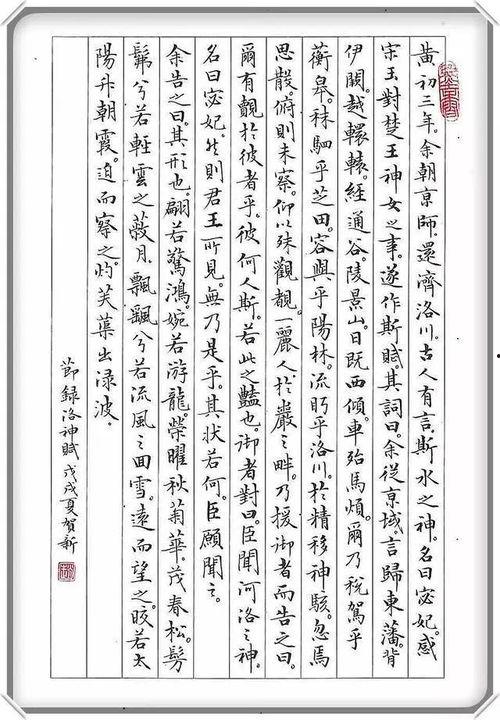 黄初三年。余朝京師。還濟洛川。古人有言。斯水之神。名曰宓妃。感
宋玉對楚王神女之事。遂作斯賦。其詞曰。余從京域。言歸東藩。背
伊闕。越轘轅。經通谷。陵景山。日既西傾。車殆馬煩。爾乃税駕乎
蘅皋。秣駟乎芝田。容與乎陽林。流眄乎洛川。於是精移神駭。忽焉
思散。俯則未察。仰以殊觀。覩一麗人。於巖之畔。乃援御者而告之曰。
爾有覿於彼者乎。彼何人斯。若此之豔也。御者對曰。臣聞河洛之神。
名曰宓妃。然則君王所見。無乃是乎。其狀若何。臣願聞之。
余告之曰。其形也。翩若驚鴻。婉若游龍。榮曜秋菊。華茂春松。髣
髴兮若輕雲之蔽月。飄颻兮若流風之回雪。遠而望之。皎若太
陽升朝霞。迫而察之。灼若芙蕖出淥波。
節録洛神賦 戊戌夏賀新